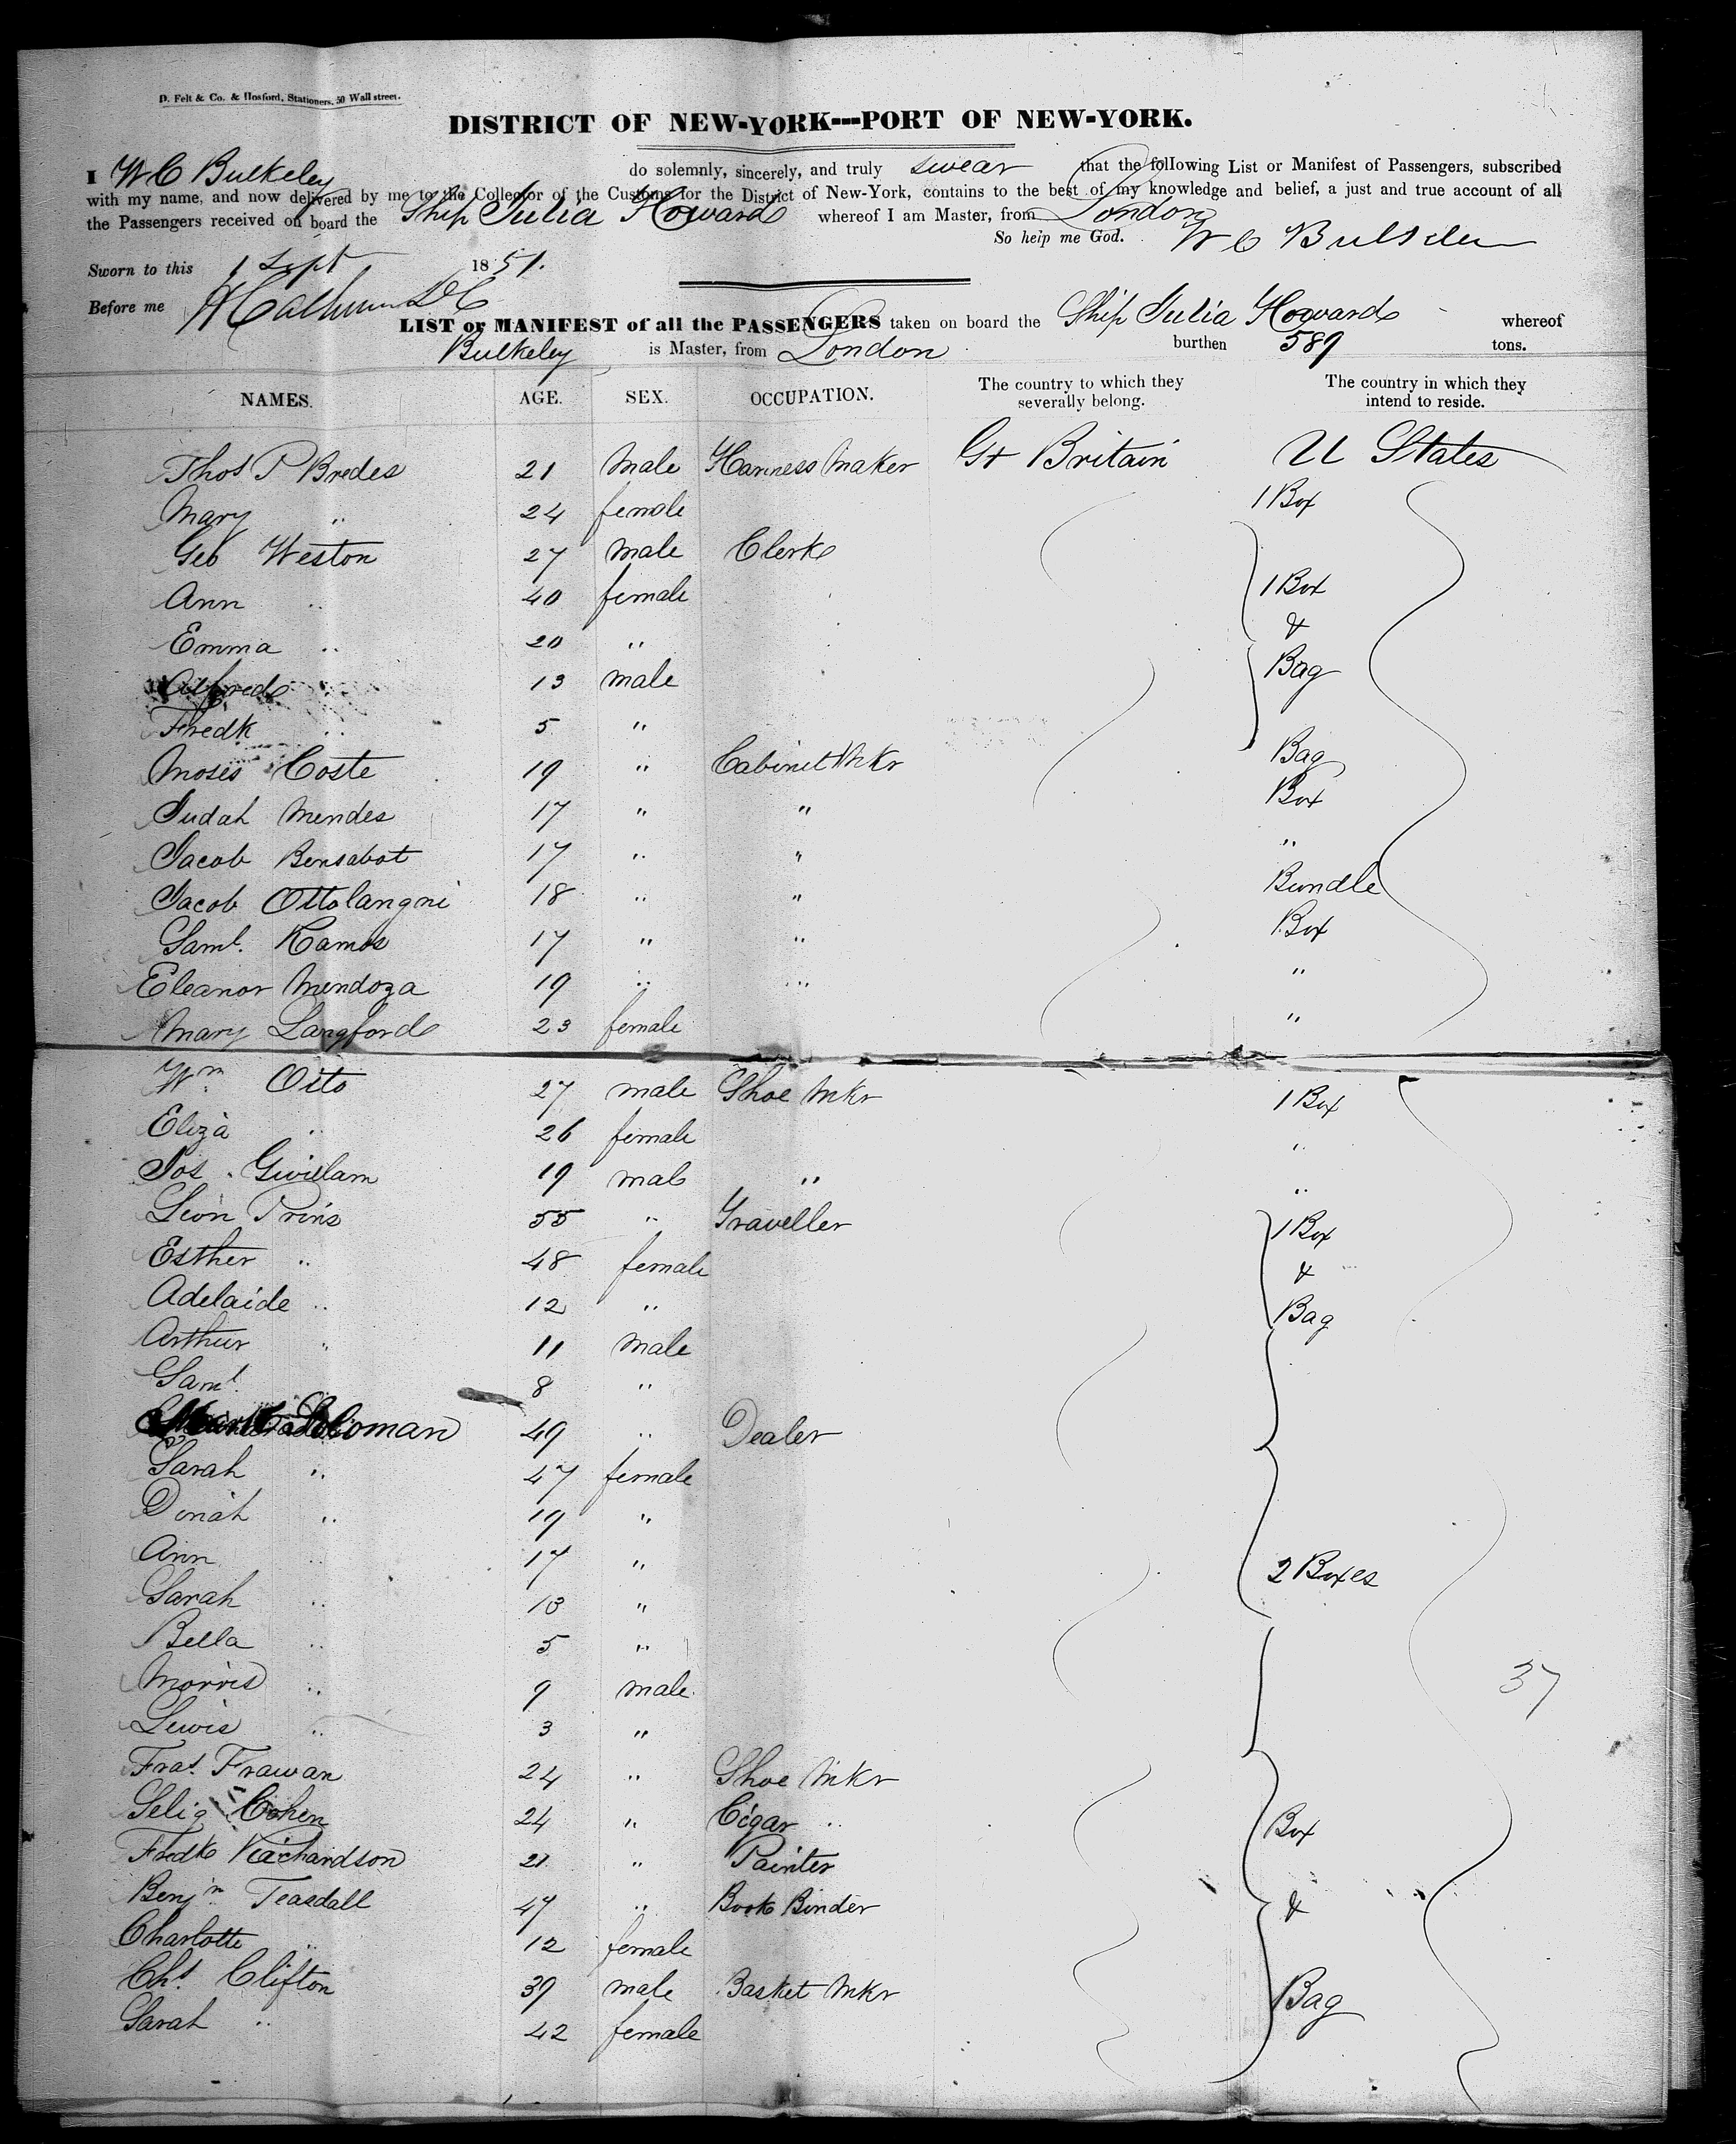 D. Felt & Co. & Hosford, Stationers, 50 Wall street.
DISTRICT OF NEW-YORK---PORT OF NEW-YORK.
I W C Bulkeley do solemnly, sincerely, and truly swear that the following List or Manifest of Passengers, subscribed
with my name, and now delivered by me to the Collector of the Customs for the District of New-York, contains to the best of my knowledge and belief, a just and true account of all
the Passengers received on board the Ship Julia Howard whereof I am Master, from London
So help me God. W C Bulkeley
Sworn to this 1 Sept 1851.
Before me
LIST or MANIFEST of all the PASSENGERS taken on board the Ship Julia Howard whereof
Bulkeley is Master, from London burthen 589 tons.
NAMES. AGE. SEX. OCCUPATION. The country to which they severally belong. The country in which they intend to reside.
Thos P Bredes 21 Male Harness Maker Gt Britain U States
Mary " 24 female 1 Box
Geo Weston 27 male Clerk
Ann " 40 female 1 Box
Emma " 20 " &
Alfred " 13 male Bag
Fredk " 5 "
Moses Coste 19 " Cabinet Mkr Bag
Judah Mendes 17 " " Box
Jacob Bensabot 17 " " "
Jacob Ottolangni 18 " " Bundle
Saml. Ramos 17 " " Box
Eleanor Mendoza 19 " " "
Mary Langford 23 female "
Wm Otto 27 male Shoe Mkr 1 Box
Eliza " 26 female "
Jos. Gwillam 19 male " "
Leon Prins 55 " Traveller 1 Box
Esther " 48 female &
Adelaide " 12 " Bag
Arthur " 11 male
Saml 8 "
Soloman 49 " Dealer
Sarah " 47 female
Dinah " 19 "
Ann " 17 "
Sarah " 13 " 2 Boxes
Bella " 5 "
Morris " 9 male 37
Lewis " 3 "
Fras. Frawan 24 " Shoe Mkr
Selig Cohen 24 " Cigar " Box
Fredk Richardson 21 " Painter
Benjn Teasdall 47 " Book Binder &
Charlotte " 12 female
Chs. Clifton 39 male Basket Mkr Bag
Sarah " 42 female